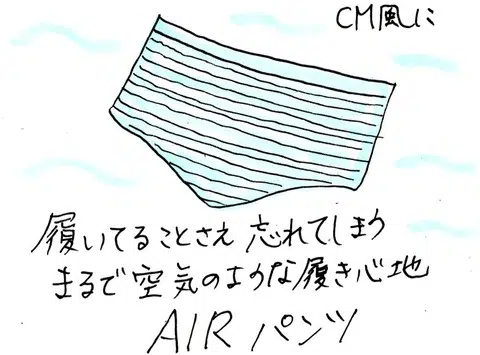 CM風に
履いてることさえ 忘れてしまう
まるで空気のような履き心地
AIRパンツ